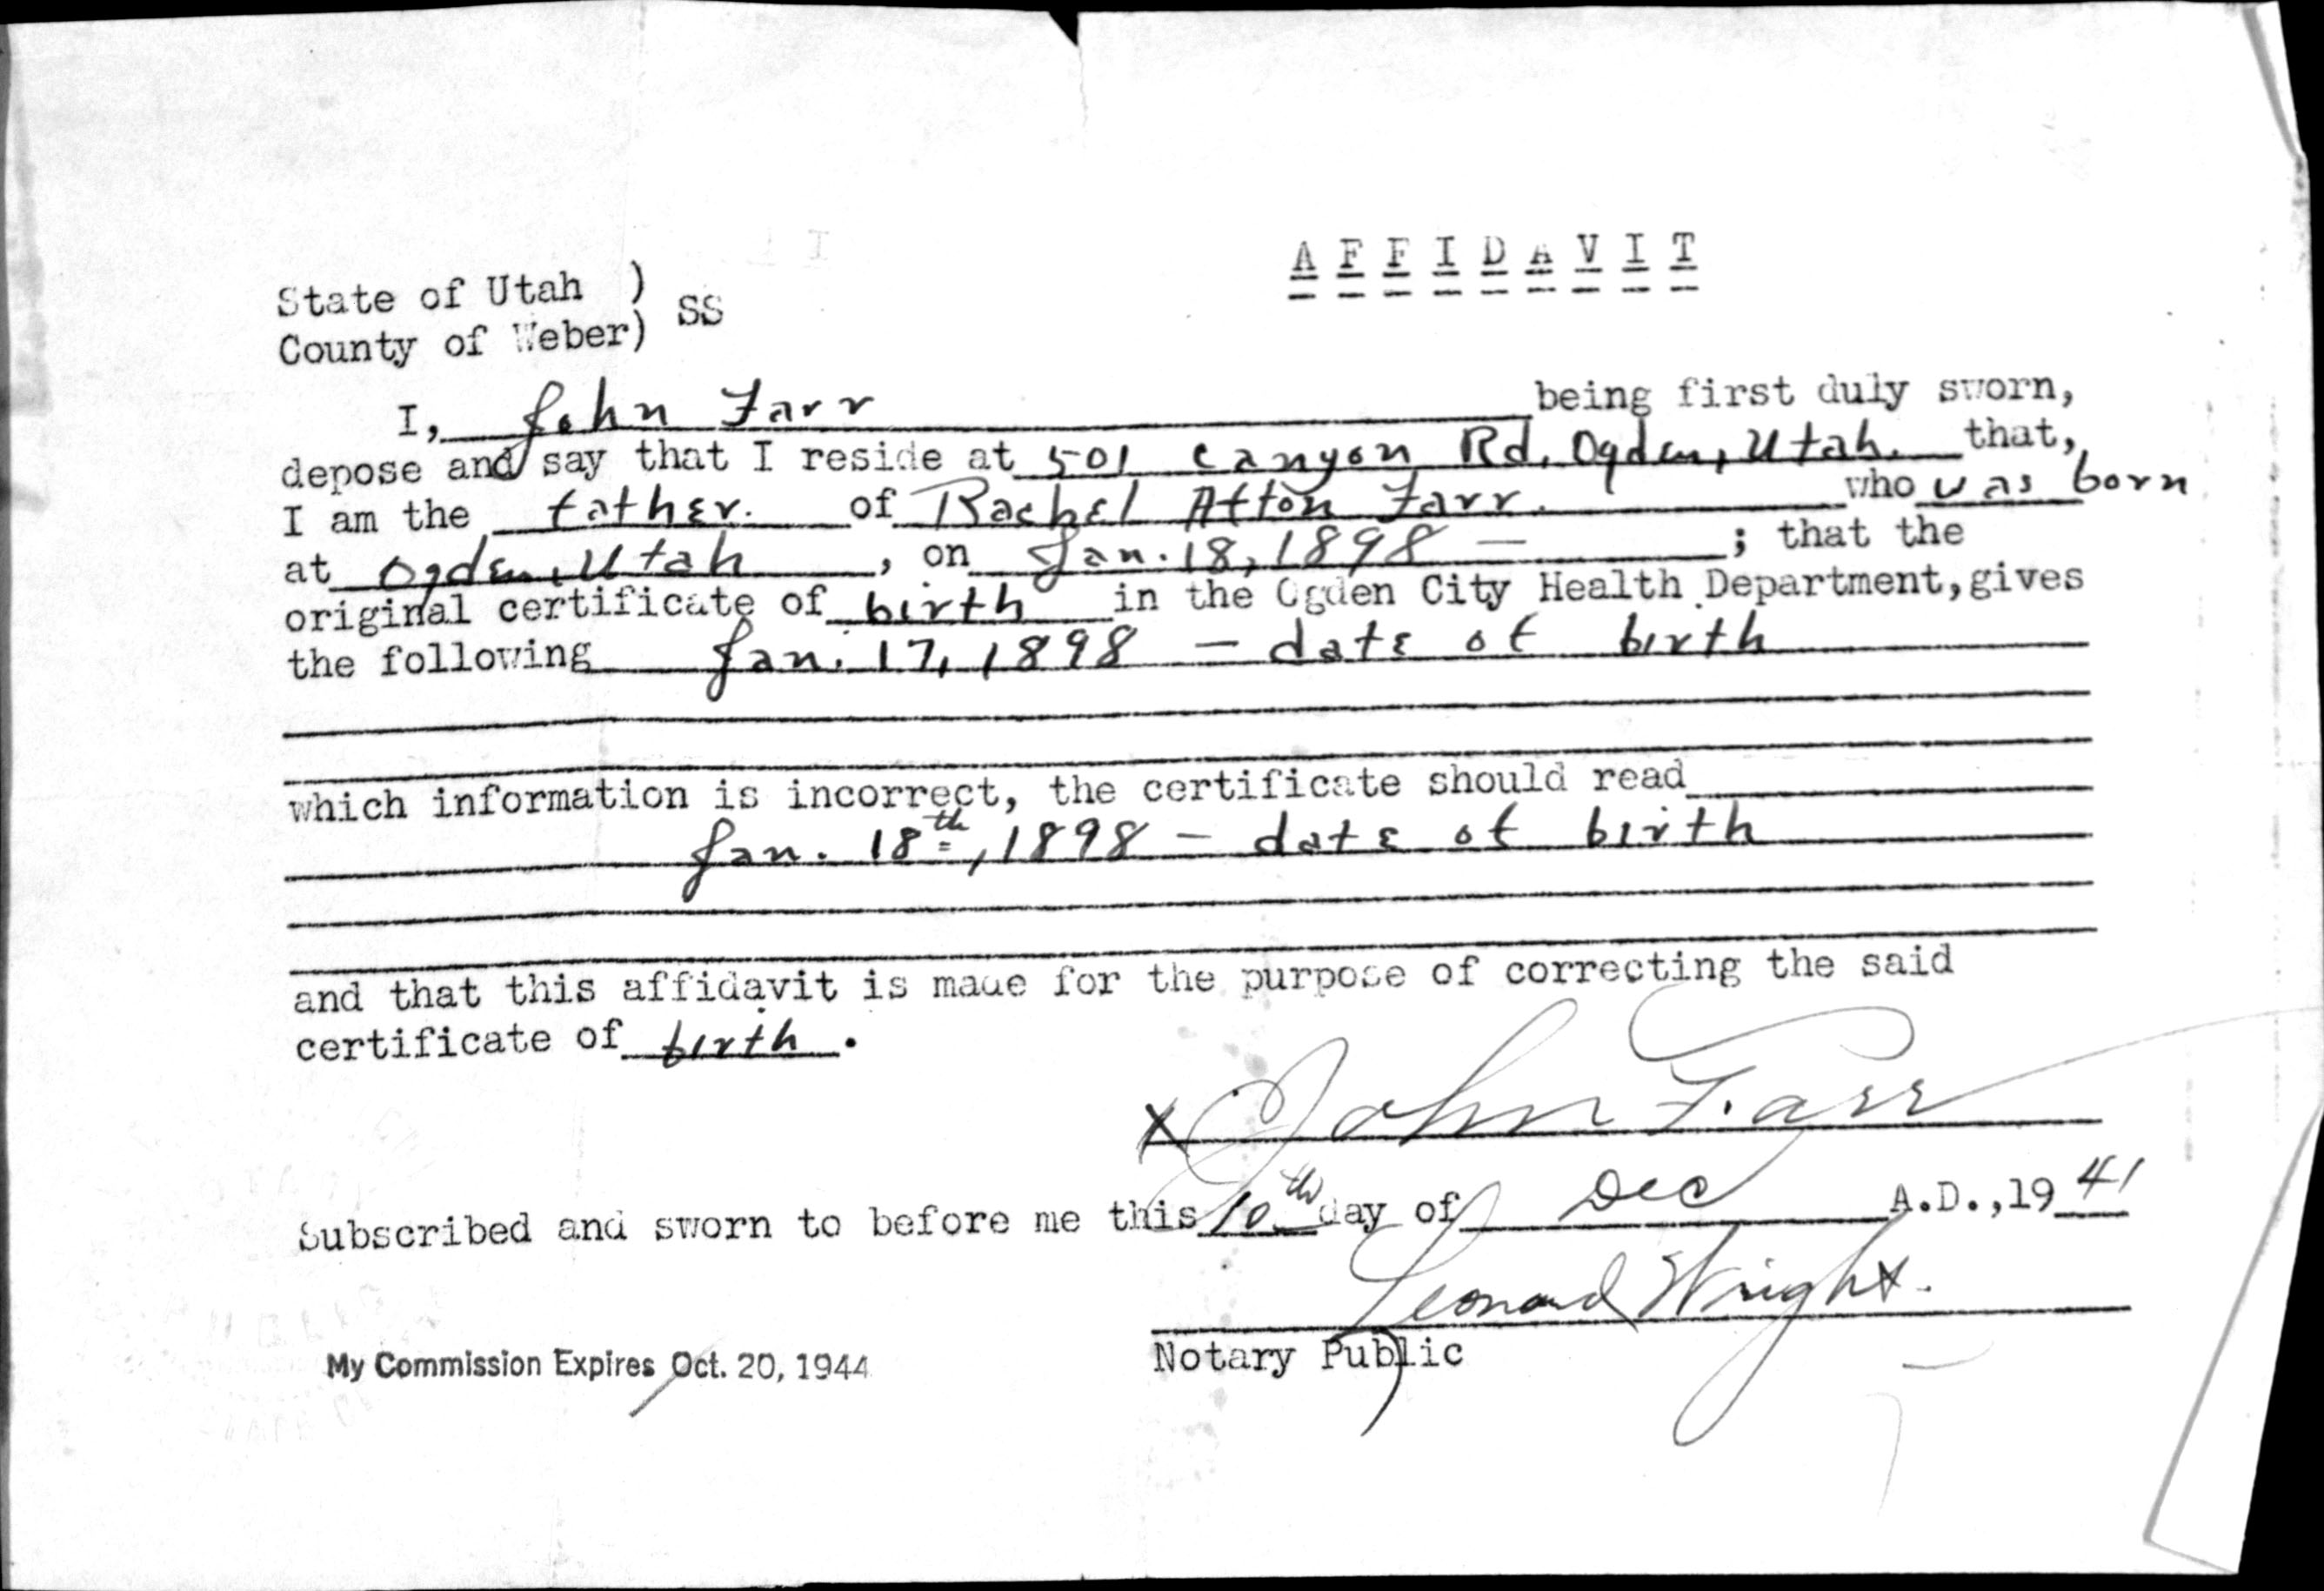 AFFIDAVIT
State of Utah )
County of Weber) SS
I, John Farr being first duly sworn,
depose and say that I reside at 501 Canyon Rd, Ogden, Utah. that,
I am the father. of Rachel Afton Farr. who was born
at Ogden, Utah, on Jan. 18, 1898 — ; that the
original certificate of birth in the Ogden City Health Department, gives
the following Jan. 17, 1898 — date of birth
which information is incorrect, the certificate should read
Jan. 18th, 1898 — date of birth
and that this affidavit is made for the purpose of correcting the said
certificate of birth.
X John Farr
Subscribed and sworn to before me this 10th day of Dec A.D., 19 41
Leonard Wright.
Notary Public
My Commission Expires Oct. 20, 1944